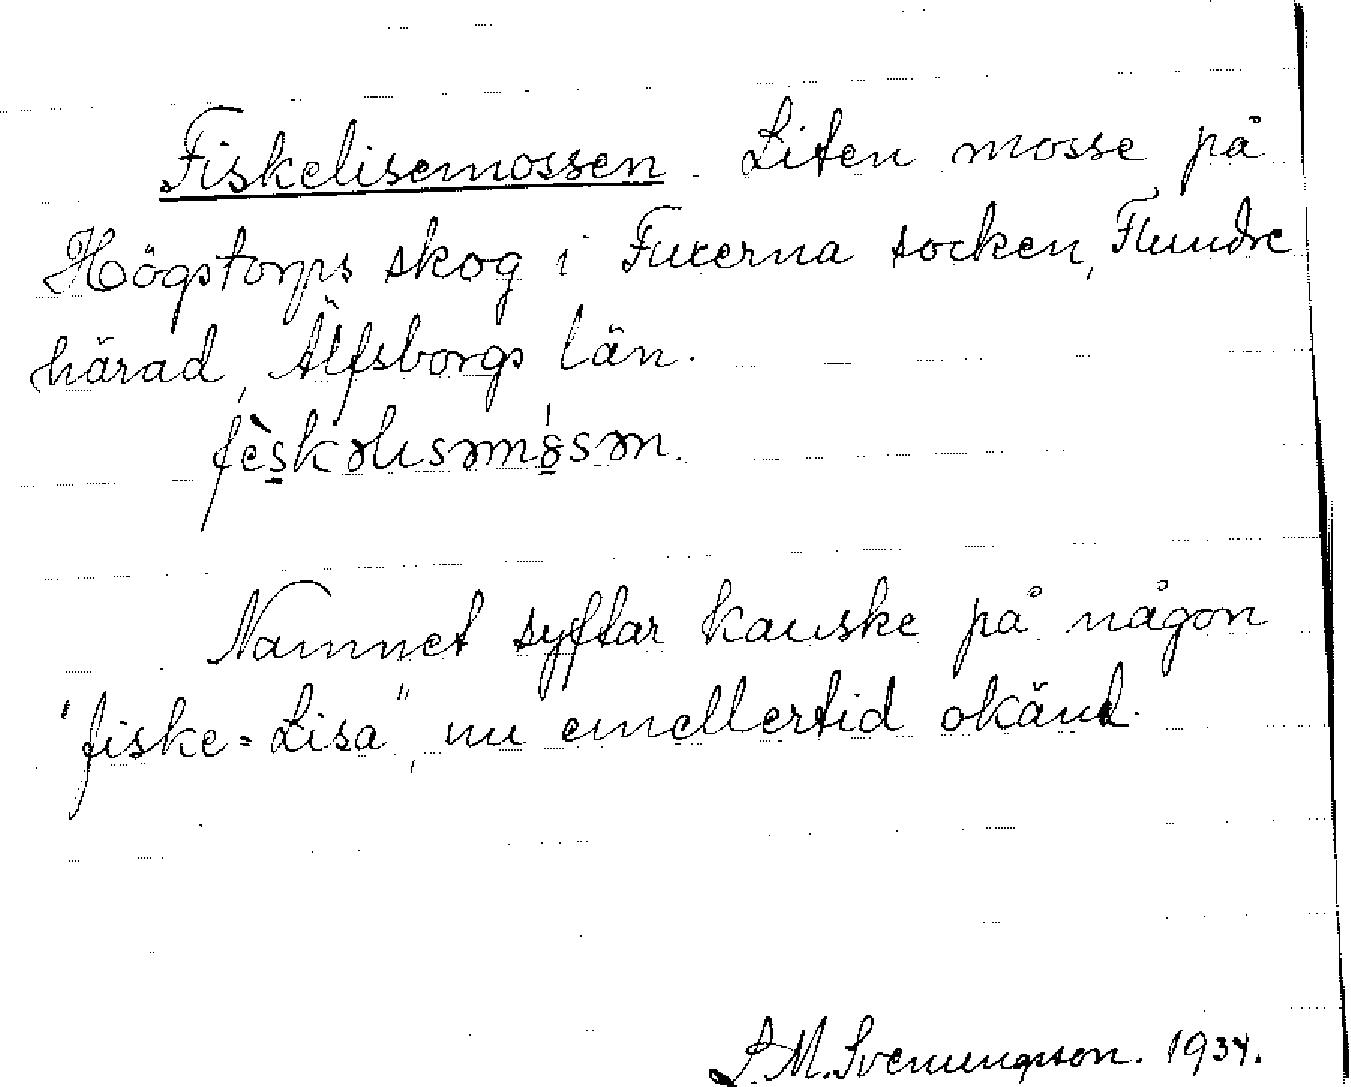 Fiskelisemossen. Liten mosse på
Högstorps skog i Fuxerna socken, Flundre
härad, Älfsborgs län.
fèskəlisəmósən.
Namnet syftar kanske på någon
"fiske=Lisa", nu emellertid okänd.
S.M. Svenungsson. 1934.